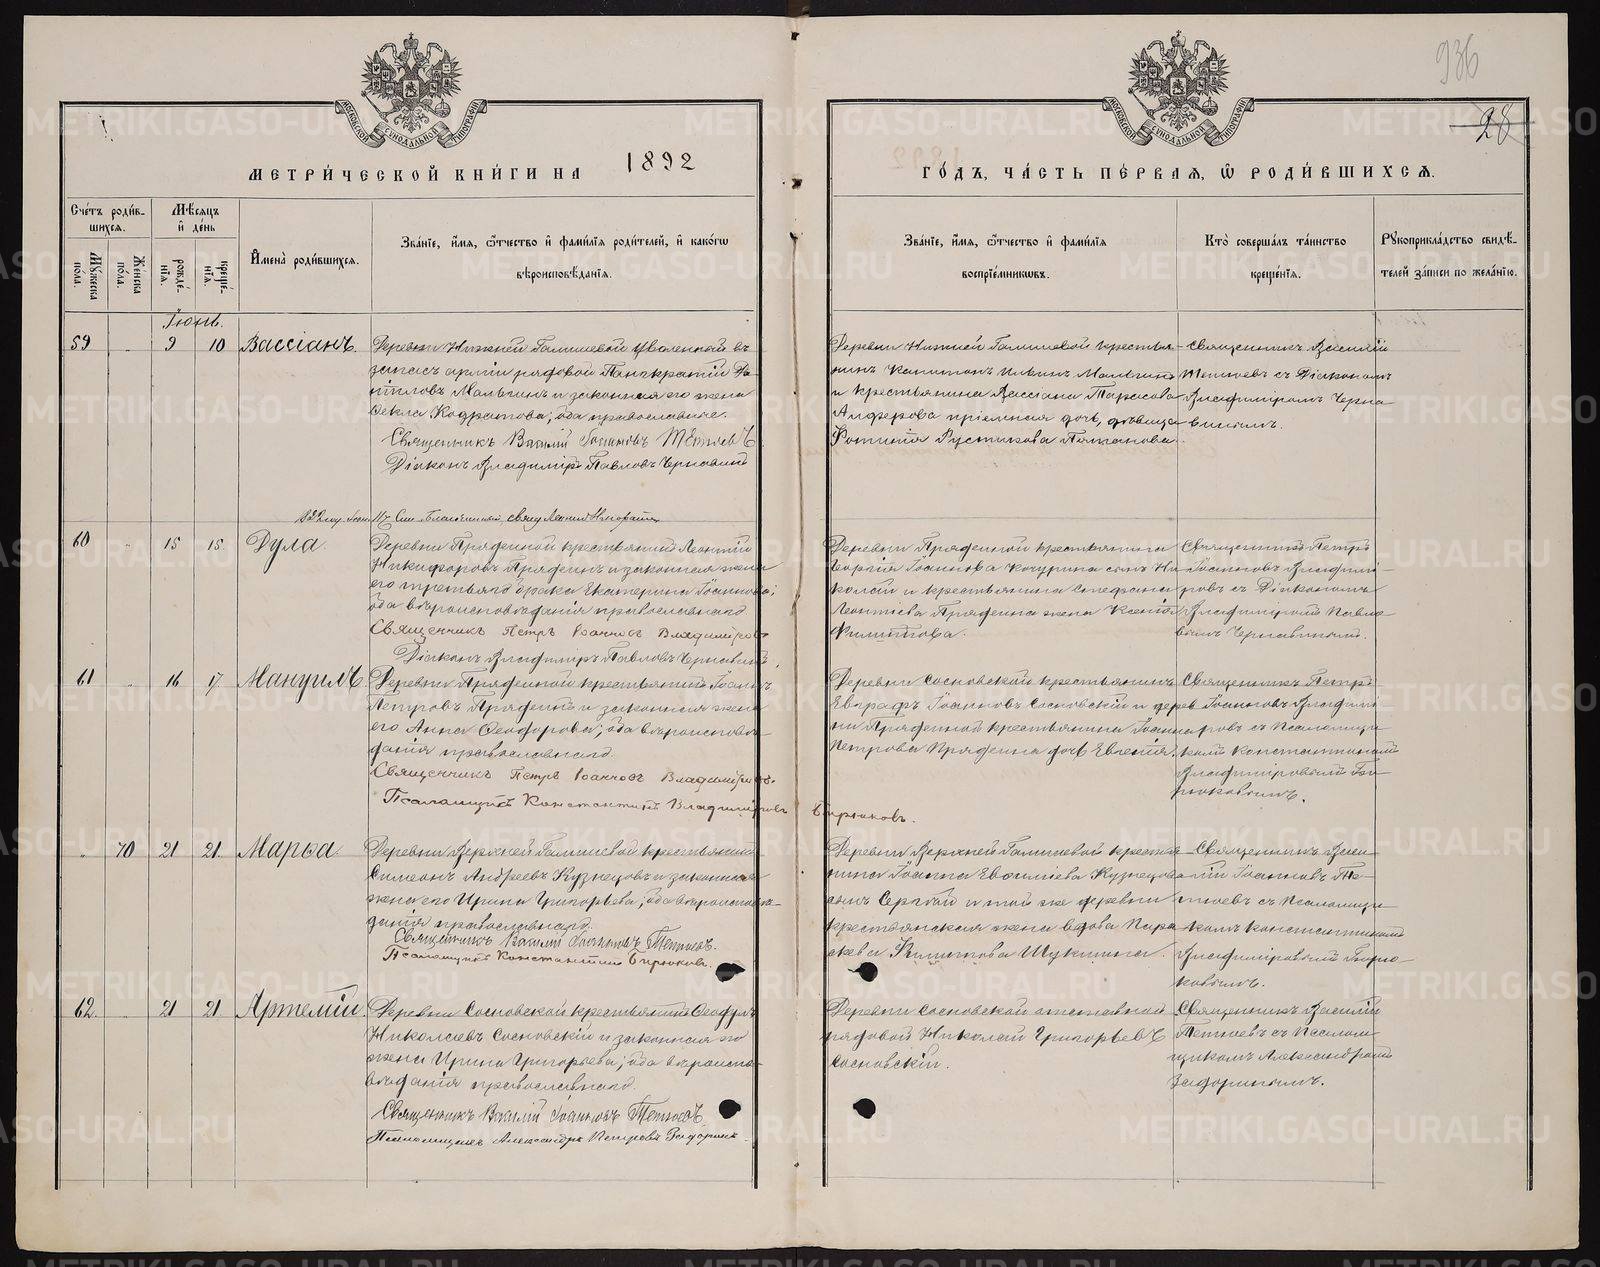 936
28
МЕТРИ́ЧЕСКОЙ КНИ́ГИ НА 1892
ГО́ДЪ, ЧА́СТЬ ПЕ́РВАЯ, Ѿ РОДИ́ВШИХСЯ.
Сче́тъ роди́в-
шихся.
Мѣ́сяцъ
и де́нь
Мужеска пола.
Же́нска пола.
рожде́-
нія.
креще́-
нія.
И́мена̀ роди́вшихся.
Зва́ніе, и́мя, ѻ҆́тчество и фами́лія роди́телей, и како́гѡ
вѣроисповѣ́данія.
Зва́ніе, и́мя, ѻ҆́тчество и фами́лія
воспріе́мниковъ.
Кто̀ соверша́лъ та́инство
креще́нія.
Рꙋкоприкла́дство свидѣ́-
телей за́писи по жела́нію.
Іюнь.
59 9 10 Вассіанъ.
Деревни Нижней Галишевой уволенный въ
запасъ арміи рядовой Панкратій Да-
ниловъ Мальгинъ и законная его жена
Ѳекла Кодратова; оба православные.
Священникъ Василій Іоанновъ Тетюевъ
Діаконъ Владиміръ Павловъ Чернавинъ
Деревни Нижней Галишевой крестья-
нинъ Капитонъ Ильинъ Мальгинъ
и крестьянина Вассіана Тарасова
Алферова пріемная дочь, дѣвица
Фотинія Рустикова
Священникъ Василій
Тетюевъ съ Діакономъ
Владиміромъ Черна-
винымъ.
60 15 15 Дула.
Деревни Пряденной крестьянинъ Леонтій
Никифоровъ Пряденъ и законная жена
его третьяго брака Екатерина Іоаннова;
оба вѣроисповѣданія православнаго
Священникъ Петръ Іоанновъ Владиміровъ
Діаконъ Владиміръ Павловъ Чернавинъ.
Деревни Пряденной крестьянина
Георгія Іоаннова Кочурина сынъ Ни-
колай и крестьянина Стефана
Леонтіева Прядеина жена Ксенія
Филиппова.
Священникъ Петръ
Іоанновъ Владимі-
ровъ съ Діакономъ
Владиміромъ Павло-
вымъ Чернавинымъ.
61 16 17 Мануилъ
Деревни Пряденной крестьянинъ Іоаннъ
Петровъ Прядеинъ и законная жена
его Анна Ѳеодорова; оба вѣроисповѣ-
данія православнаго
Священникъ Петръ Іоанновъ Владиміровъ.
Псаломщикъ Константинъ Владиміровъ Бирюковъ.
Деревни Сосновской крестьянинъ
Евграфъ Іоанновъ Сосновскій и дерев-
ни Пряденной крестьянина Іоанна
Петрова Прядеина дочь Евгенія.
Священникъ Петръ
Іоанновъ Владимі-
ровъ съ Псаломщи-
комъ Константиномъ
Владиміровымъ Би-
рюковымъ.
" 70 21 21 Марѳа
Деревни Верхней Галишевой крестьянинъ
Симеонъ Андреевъ Кузнецовъ и законная
жена его Ирина Григорьева; оба вѣроисповѣ-
данія православнаго.
Священникъ Василій Іоанновъ Тетюевъ.
Псаломщикъ Константинъ Бирюковъ.
Деревни Верхней Галишевой крестья-
нина Іоанна Евѳиміева Кузнецова
сынъ Сергій и той же деревни
крестьянская жена вдова Пара-
скева Филиппова Щукина.
Священникъ Васи-
лій Іоанновъ Те-
тюевъ съ Псаломщи-
комъ Константиномъ
Владиміровымъ Бирю-
ковымъ.
62 21 21 Артемій
Деревни Сосновской крестьянинъ Ѳеодоръ
Николаевъ Сосновскій и законная его
жена Ирина Григорьева; оба вѣроиспо-
вѣданія православнаго.
Священникъ Василій Іоанновъ Тетюевъ
Псаломщикъ Александръ Петровъ Задоринъ.
Деревни Сосновской отставной
рядовой Николай Григорьевъ
Сосновскій.
Священникъ Василій
Тетюевъ съ Псалом-
щикомъ Александромъ
Задоринымъ.
METRIKI.GASO-URAL.RU